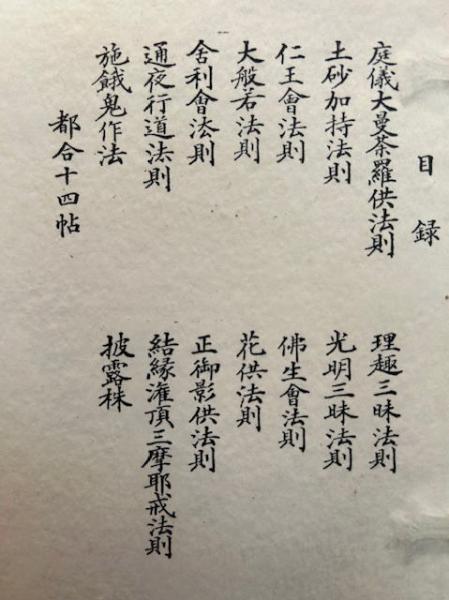 目録
庭儀大曼荼羅供法則　理趣三昧法則
土砂加持法則　光明三昧法則
仁王會法則　佛生會法則
大般若法則　花供法則
舎利會法則　正御影供法則
通夜行道法則　結縁灌頂三摩耶戒法則
施餓鬼作法　披露株
都合十四帖